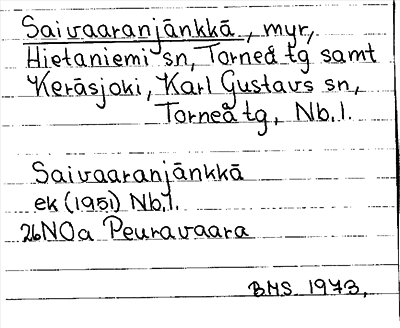 Saivaaranjänkkä, myr,
Hietaniemi sn, Torneå tg samt
Keräsjoki, Karl Gustavs sn,
Torneå tg, Nb.l.
Saivaaranjänkkä
ek (1951) Nb.l.
26NOa Peuravaara
BMS 1973.